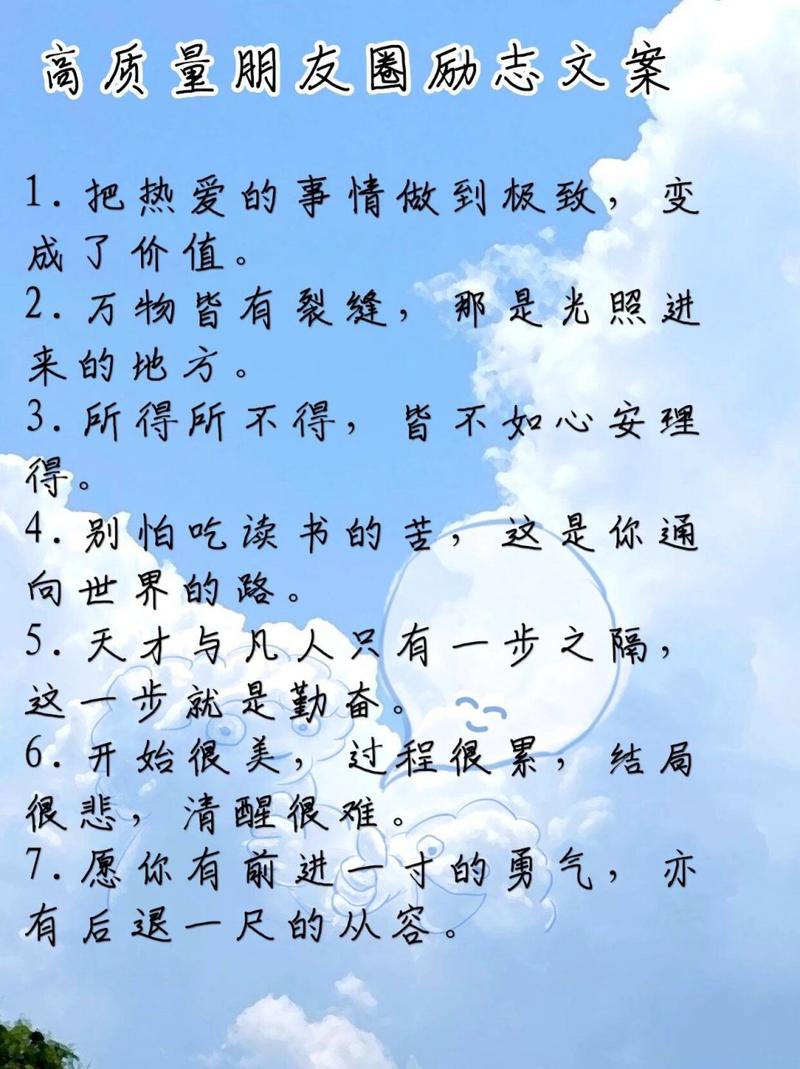 高质量朋友圈励志文案
1.把热爱的事情做到极致，变
成了价值。
2.万物皆有裂缝，那是光照进
来的地方。
3.所得所不得，皆不如心安理
得。
4.别怕吃读书的苦，这是你通
向世界的路。
5.天才与凡人只有一步之隔，
这一步就是勤奋。
6.开始很美，过程很累，结局
很悲，清醒很难。
7.愿你有前进一寸的勇气，亦
有后退一尺的从容。